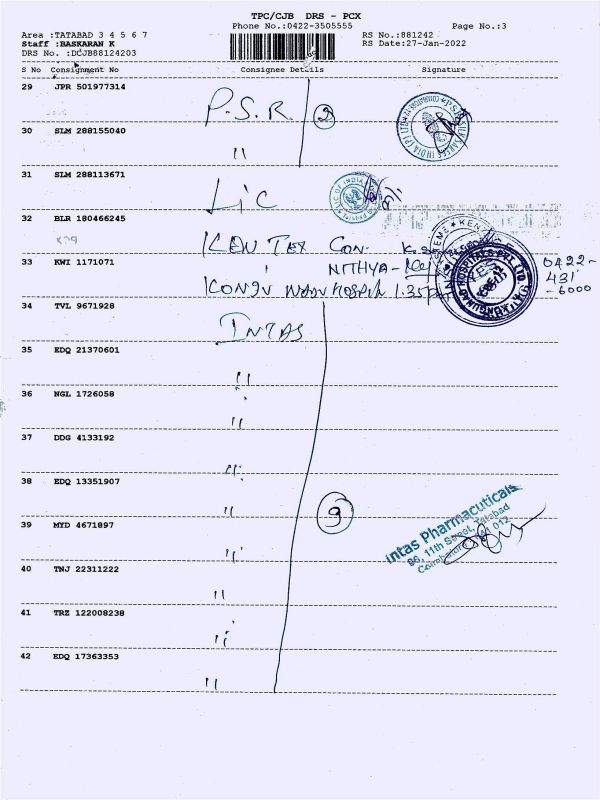 TPC/CJB DRS - PCX
Phone No.:0422-3505555 Page No.:3
Area :TATABAD 3 4 5 6 7 RS No.:881242
Staff :BASKARAN K RS Date:27-Jan-2022
DRS No. :DCJB88124203
S No Consignment No Consignee Details Signature
29 JPR 501977314
P.S.R. 2
30 SLM 288155040
"
31 SLM 288113671
LIC
32 BLR 180466245
KEN TEX CON-
33 KWI 1171071
NITHYA-
0422-
431
-6000
34 TVL 9671928
INTAS
35 EDQ 21370601
"
36 NGL 1726058
"
37 DDG 4133192
"
38 EDQ 13351907
"
9
39 MYD 4671897
"
Intas Pharmacuticals
86, 11th Street, Tatabad
40 TNJ 22311222
"
41 TRZ 122008238
"
42 EDQ 17363353
"